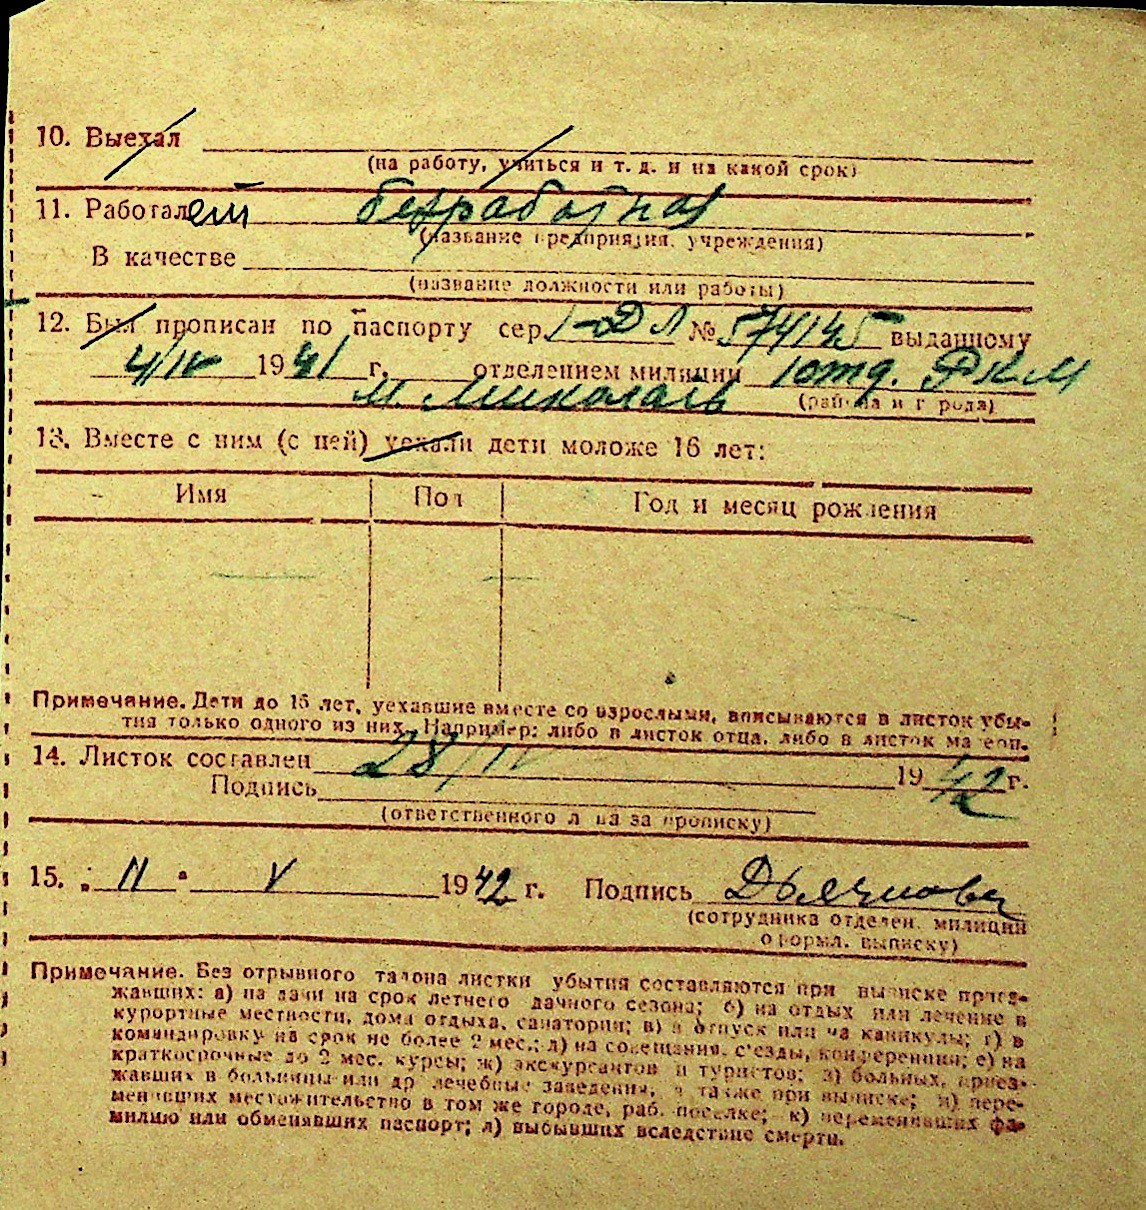 10. Выехал
(на работу, учиться и т. д. и на какой срок)
11. Работает безработная
(название предприятия, учреждения)
В качестве
(название должности или работы)
12. Был прописан по паспорту сер. I-ДЛ № 574145 выданному
4/IV 1941 г. отделением милиции 1 отд. РКМ
(района и города)
13. Вместе с ним (с ней) уехали дети моложе 16 лет:
Имя Пол Год и месяц рождения
Примечание. Дети до 15 лет, уехавшие вместе со взрослыми, вписываются в листок убы-
тия только одного из них. Например: либо в листок отца, либо в листок матери.
14. Листок составлен 28/IV 1942 г.
Подпись
(ответственного лица за прописку)
15. „ 11 " V 1942 г. Подпись
(сотрудника отделен. милиции
оформл. выписку)
Примечание. Без отрывного талона листки убытия составляются при выписке приез-
жавших: а) на дачи на срок летнего дачного сезона; б) на отдых или лечение в
курортные местности, дома отдыха, санатории; в) в отпуск или на каникулы; г) в
командировку на срок не более 2 мес.; д) на совещания, съезды, конференции; е) на
краткосрочные до 2 мес. курсы; ж) экскурсантов и туристов; з) больных, приез-
жавших в больницы или др лечебные заведения, а также при выписке; и) пере-
менивших местожительство в том же городе, раб. поселке; к) переменивших фа-
милию или обменявших паспорт; л) выбывших вследствие смерти.